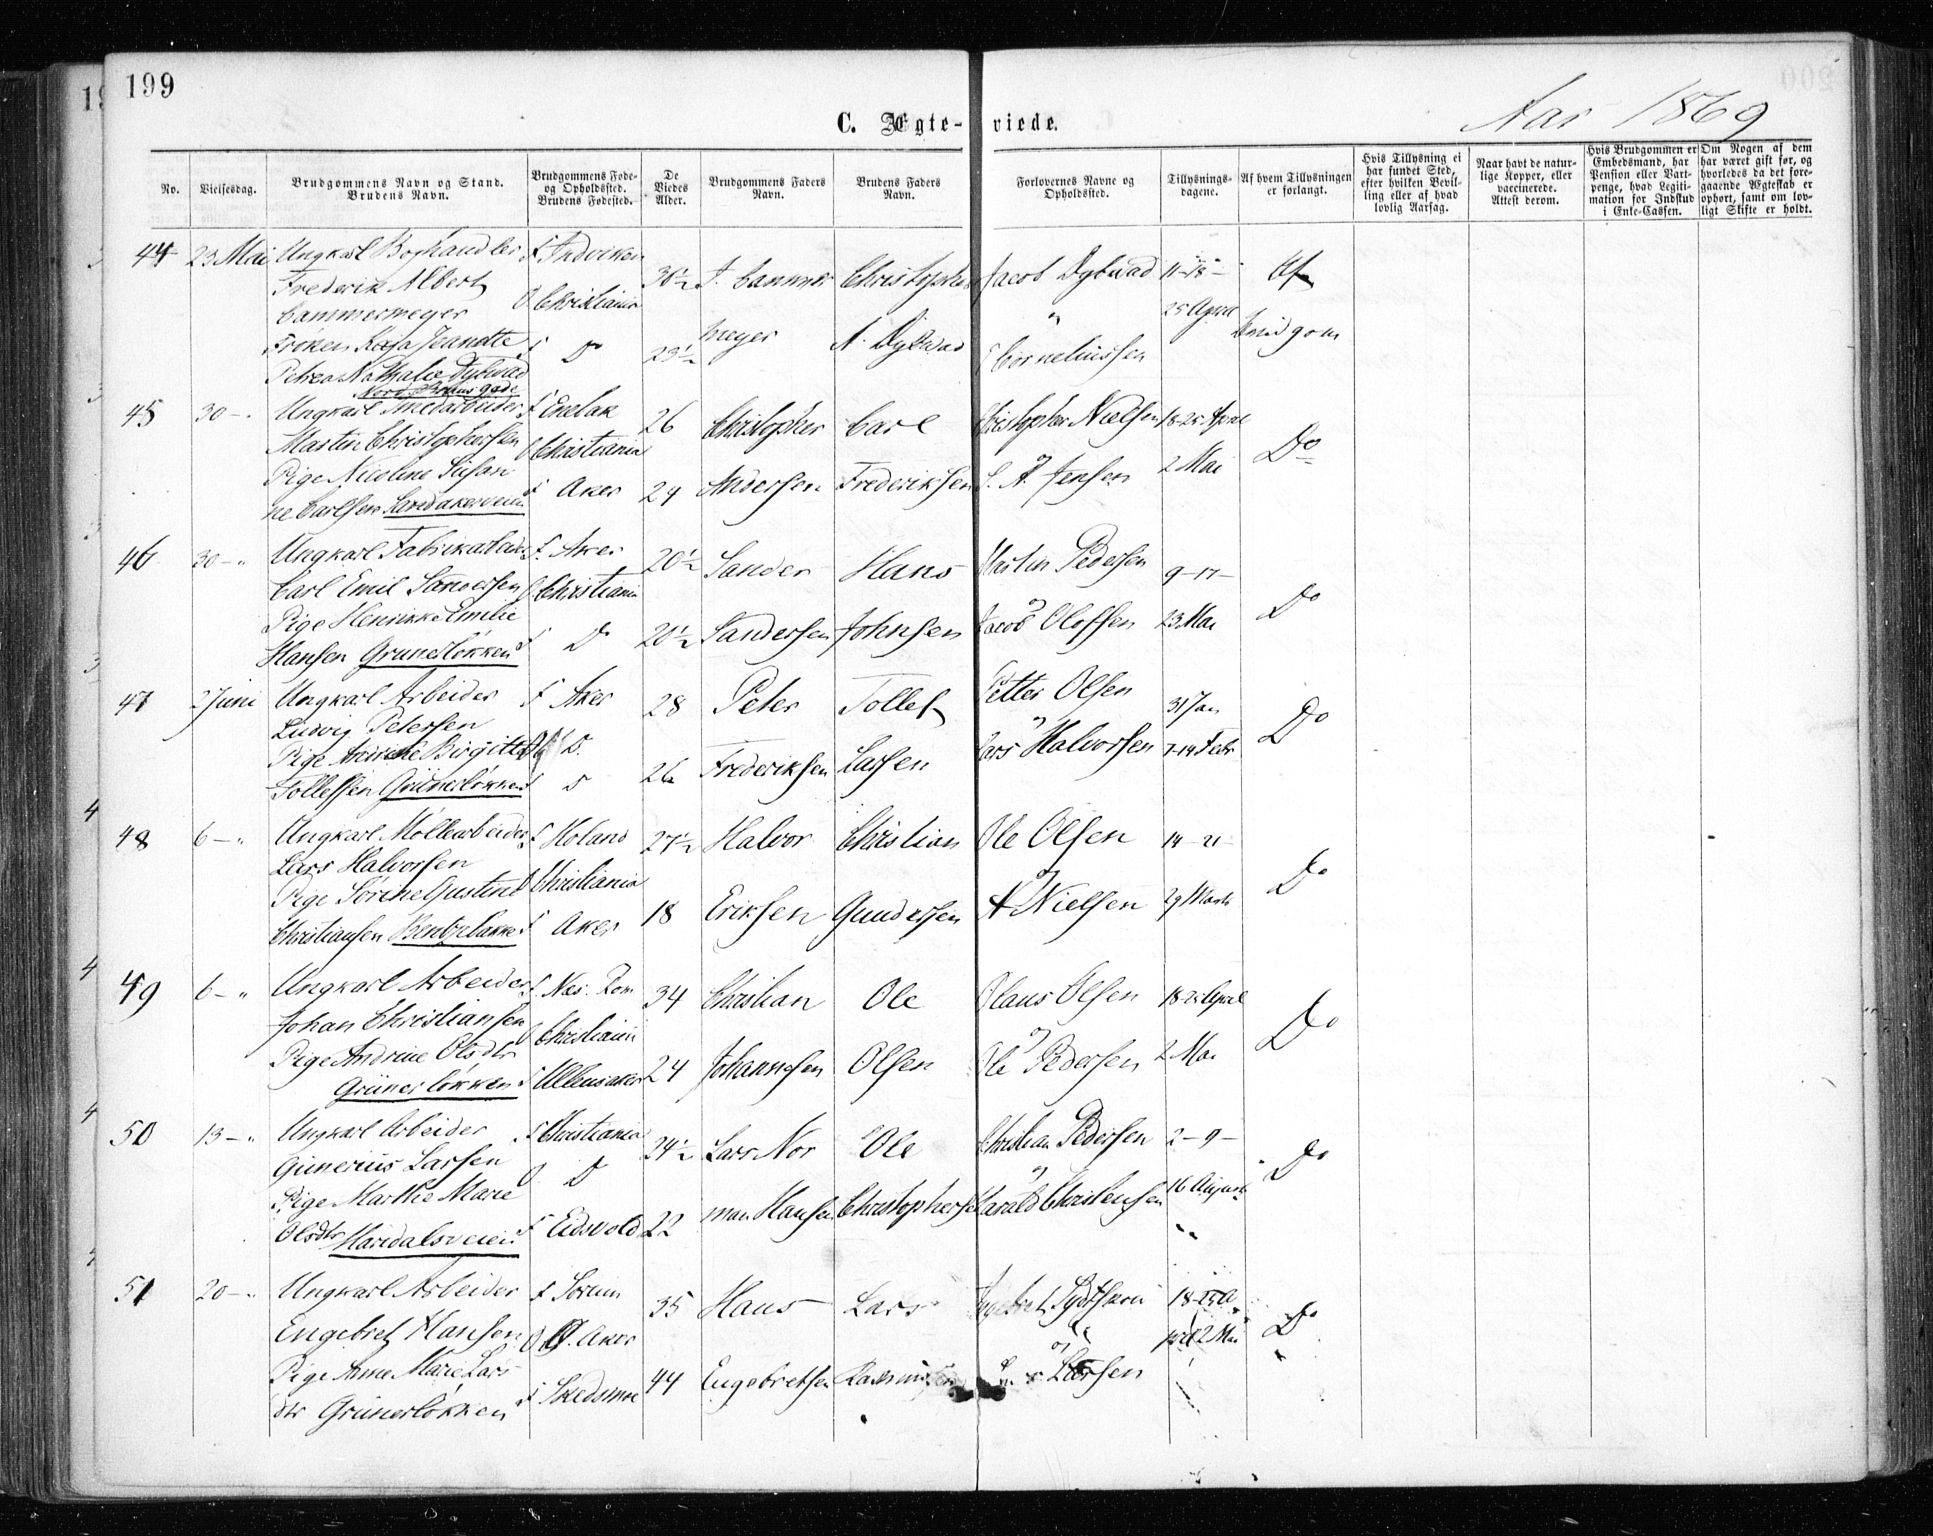 199
Aar 1869
C. Ægte-viede.
No.
Vielsesdag.
Brudgommens Navn og Stand.
Brudens Navn.
Brudgommens Føde-
og Opholdssted.
Brudens Fødested.
De
Viedes
Alder.
Brudgommens Faders
Navn.
Brudens Faders
Navn.
Forlovernes Navne og
Opholdssted.
Tillysnings-
dagene.
Af hvem Tillysningen
er forlangt.
Hvis Tillysning ei
har fundet Sted,
efter hvilken Bevil-
ling eller af hvad
lovlig Aarsag.
Naar havt de natur-
lige Kopper, eller
vaccinerede.
Attest derom.
Hvis Brudgommen er
Embedsmand, har
Pension eller Vart-
penge, hvad Legiti-
mation for Indskud
i Enke-Cassen.
Om Nogen af dem
har været gift før, og
hvorledes da det fore-
gaaende Ægteskab er
ophørt, samt om lov-
ligt Skifte er holdt.
44 23 Mai Ungkarl Boghandler f Indviken 30½ J. Cammer Christopher Jacob Dybwad 11-18- Af
Frederik Albert
Cammermeyer O Christiania " 25 April Brudgom
Frøken Rosa Jeanette f Do 23½ meyer A. Dybwad Corneliussen
Petrea Nathalie Dybwad
Nord. Brun gade
45 30 - Ungkarl Smedarbeider f Enebak 26 Christopher Carl Christopher Nielsen 18-25 April Do
Martin Christophersen O Christiania
Pige Nicoline Susan f Aker 24 Andersen Frederiksen S. A. Jensen 2 Mai
ne Carlsen Sandakerveien
46 30 - " Ungkarl Fabrikarbeider f. Aker 20½ Sander Hans Martin Pedersen 9-17- Do
Carl Emil Sandersen O Christiania
Pige Henrikke Emilie f D 20½ Sandersen Johnsen Jacob Olofsen 23 Mai
Hansen Grünerløkken
47 2 Juni Ungkarl Arbeider f Aker 28 Peter Tollef Petter Olsen 31 Jan Do
Ludvig Petersen
Pige Birgitte O D.
Tollefsen Grünerløkken f D 26 Frederiksen Larsen Lars Halvorsen 7-14 Febr
48 6 - " Ungkarl Møllearbeider f Høland 27½ Halvor Christian Ole Olsen 14-21- Do
Lars Halvorsen
Pige Sørine Gustine O Christiania
Christiansen Bentseløkke f Aker 18 Eriksen Gundersen A Nielsen 29 Marts
49 6 - " Ungkarl Arbeider f. Næs. Rom 34 Christian Ole Olaus Olsen 18-25 April Do
Johan Christiansen O Christiania
Pige Andrine Olsdtr f Ullensaker 24 Johannesen Olsen Ole Pedersen 2 Mai
Grünerløkken
50 13 - " Ungkarl Arbeider f Christiania 24½ Lars Nor Ole Christian Pedersen 2-9- Do
Gunerius Larsen O D
Pige Marthe Marie f Eidsvold 22 man Hansen Christophersen Harald Christensen 16 August
Olsdtr Maridalsveien
51 20 - " Ungkarl Arbeider f Sørum 35 Hans Lars Ingebret 18-25 A Do
Engebret Hansen O Ø. Aker pril 2 Mai
Pige Anne Marie Lars f Skedsmoe 44 Engebretsen Rasmussen Larsen
dtr Grünerløkken